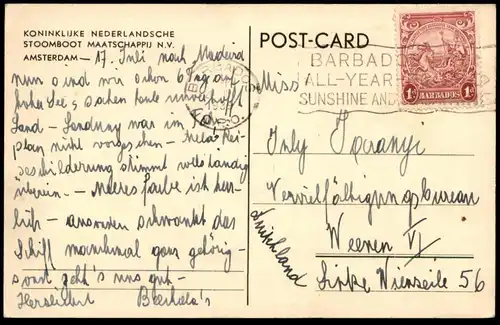 KONINKLIJKE NEDERLANDSCHE
STOOMBOOT MAATSCHAPPIJ N.V.
AMSTERDAM — 17. Juli nach Madeira
nun sind wir schon 6 Tag auf
hoher See, sahen heute unverhofft
Land — Landung war im
plan nicht vorgesehen —
beschilderung stimmt vollständig
überein. — Meeresfarbe ist herr-
lich — ansonsten schwankt das
Schiff manchmal ganz gehörig —
sonst geht's uns gut —
Herzlichst
POST-CARD
BARBADOS
ALL-YEAR
SUNSHINE AND
1D BARBADOS 1D
Miss
Vervielfältigungsbureau
Linke Wienzeile 56